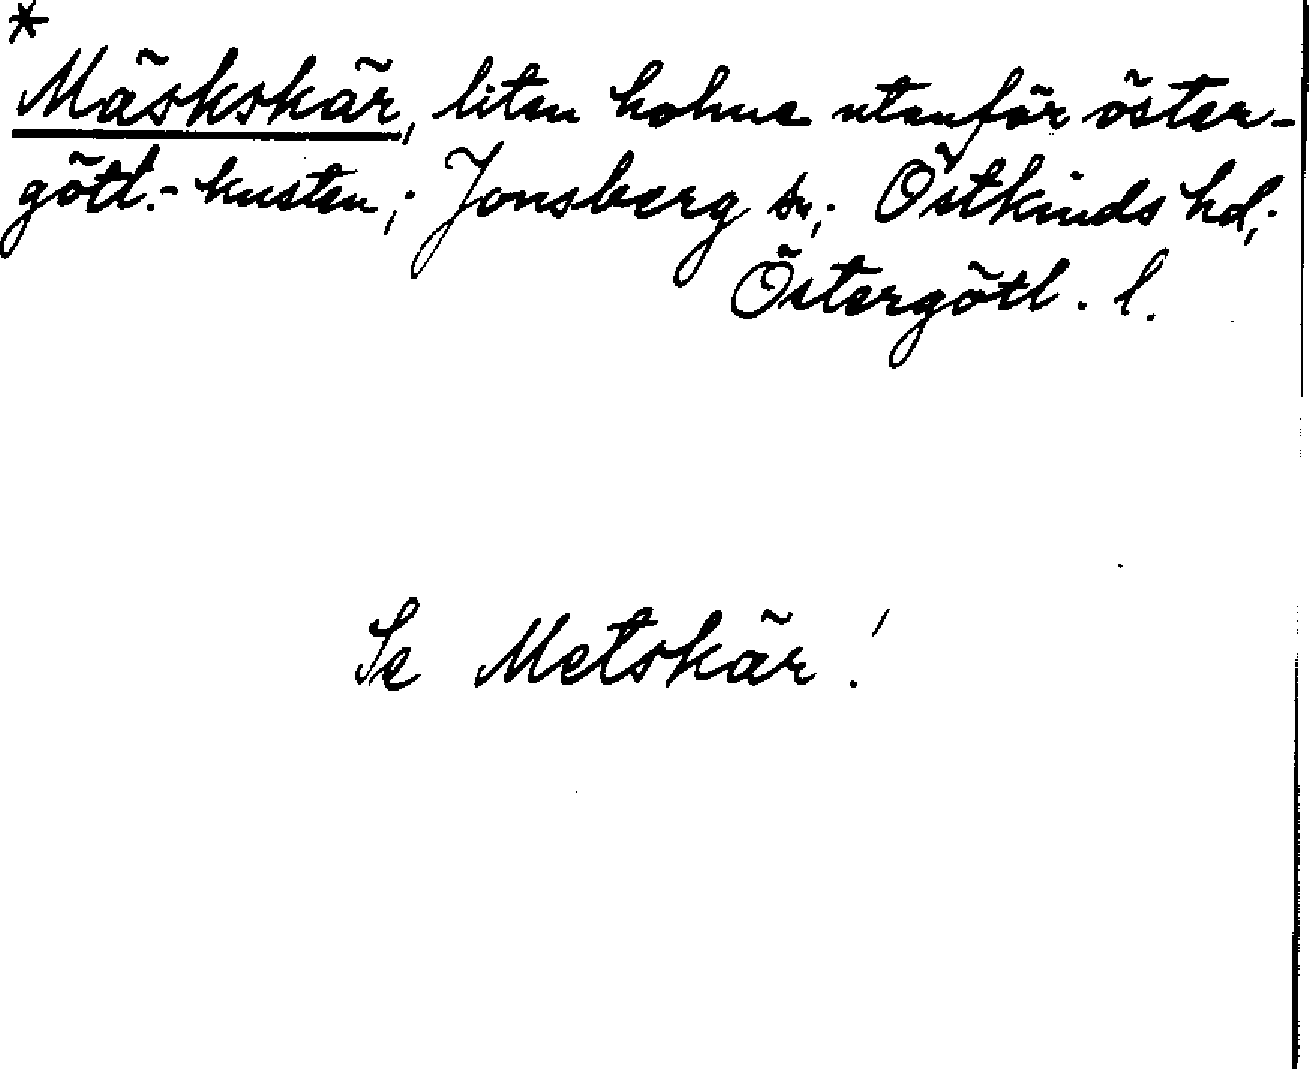 *
Mäskskär, liten holme utanför öster-
götl.-kusten; Jonsberg sn; Östkinds hd;
Östergötl. l.
Se Metskär!